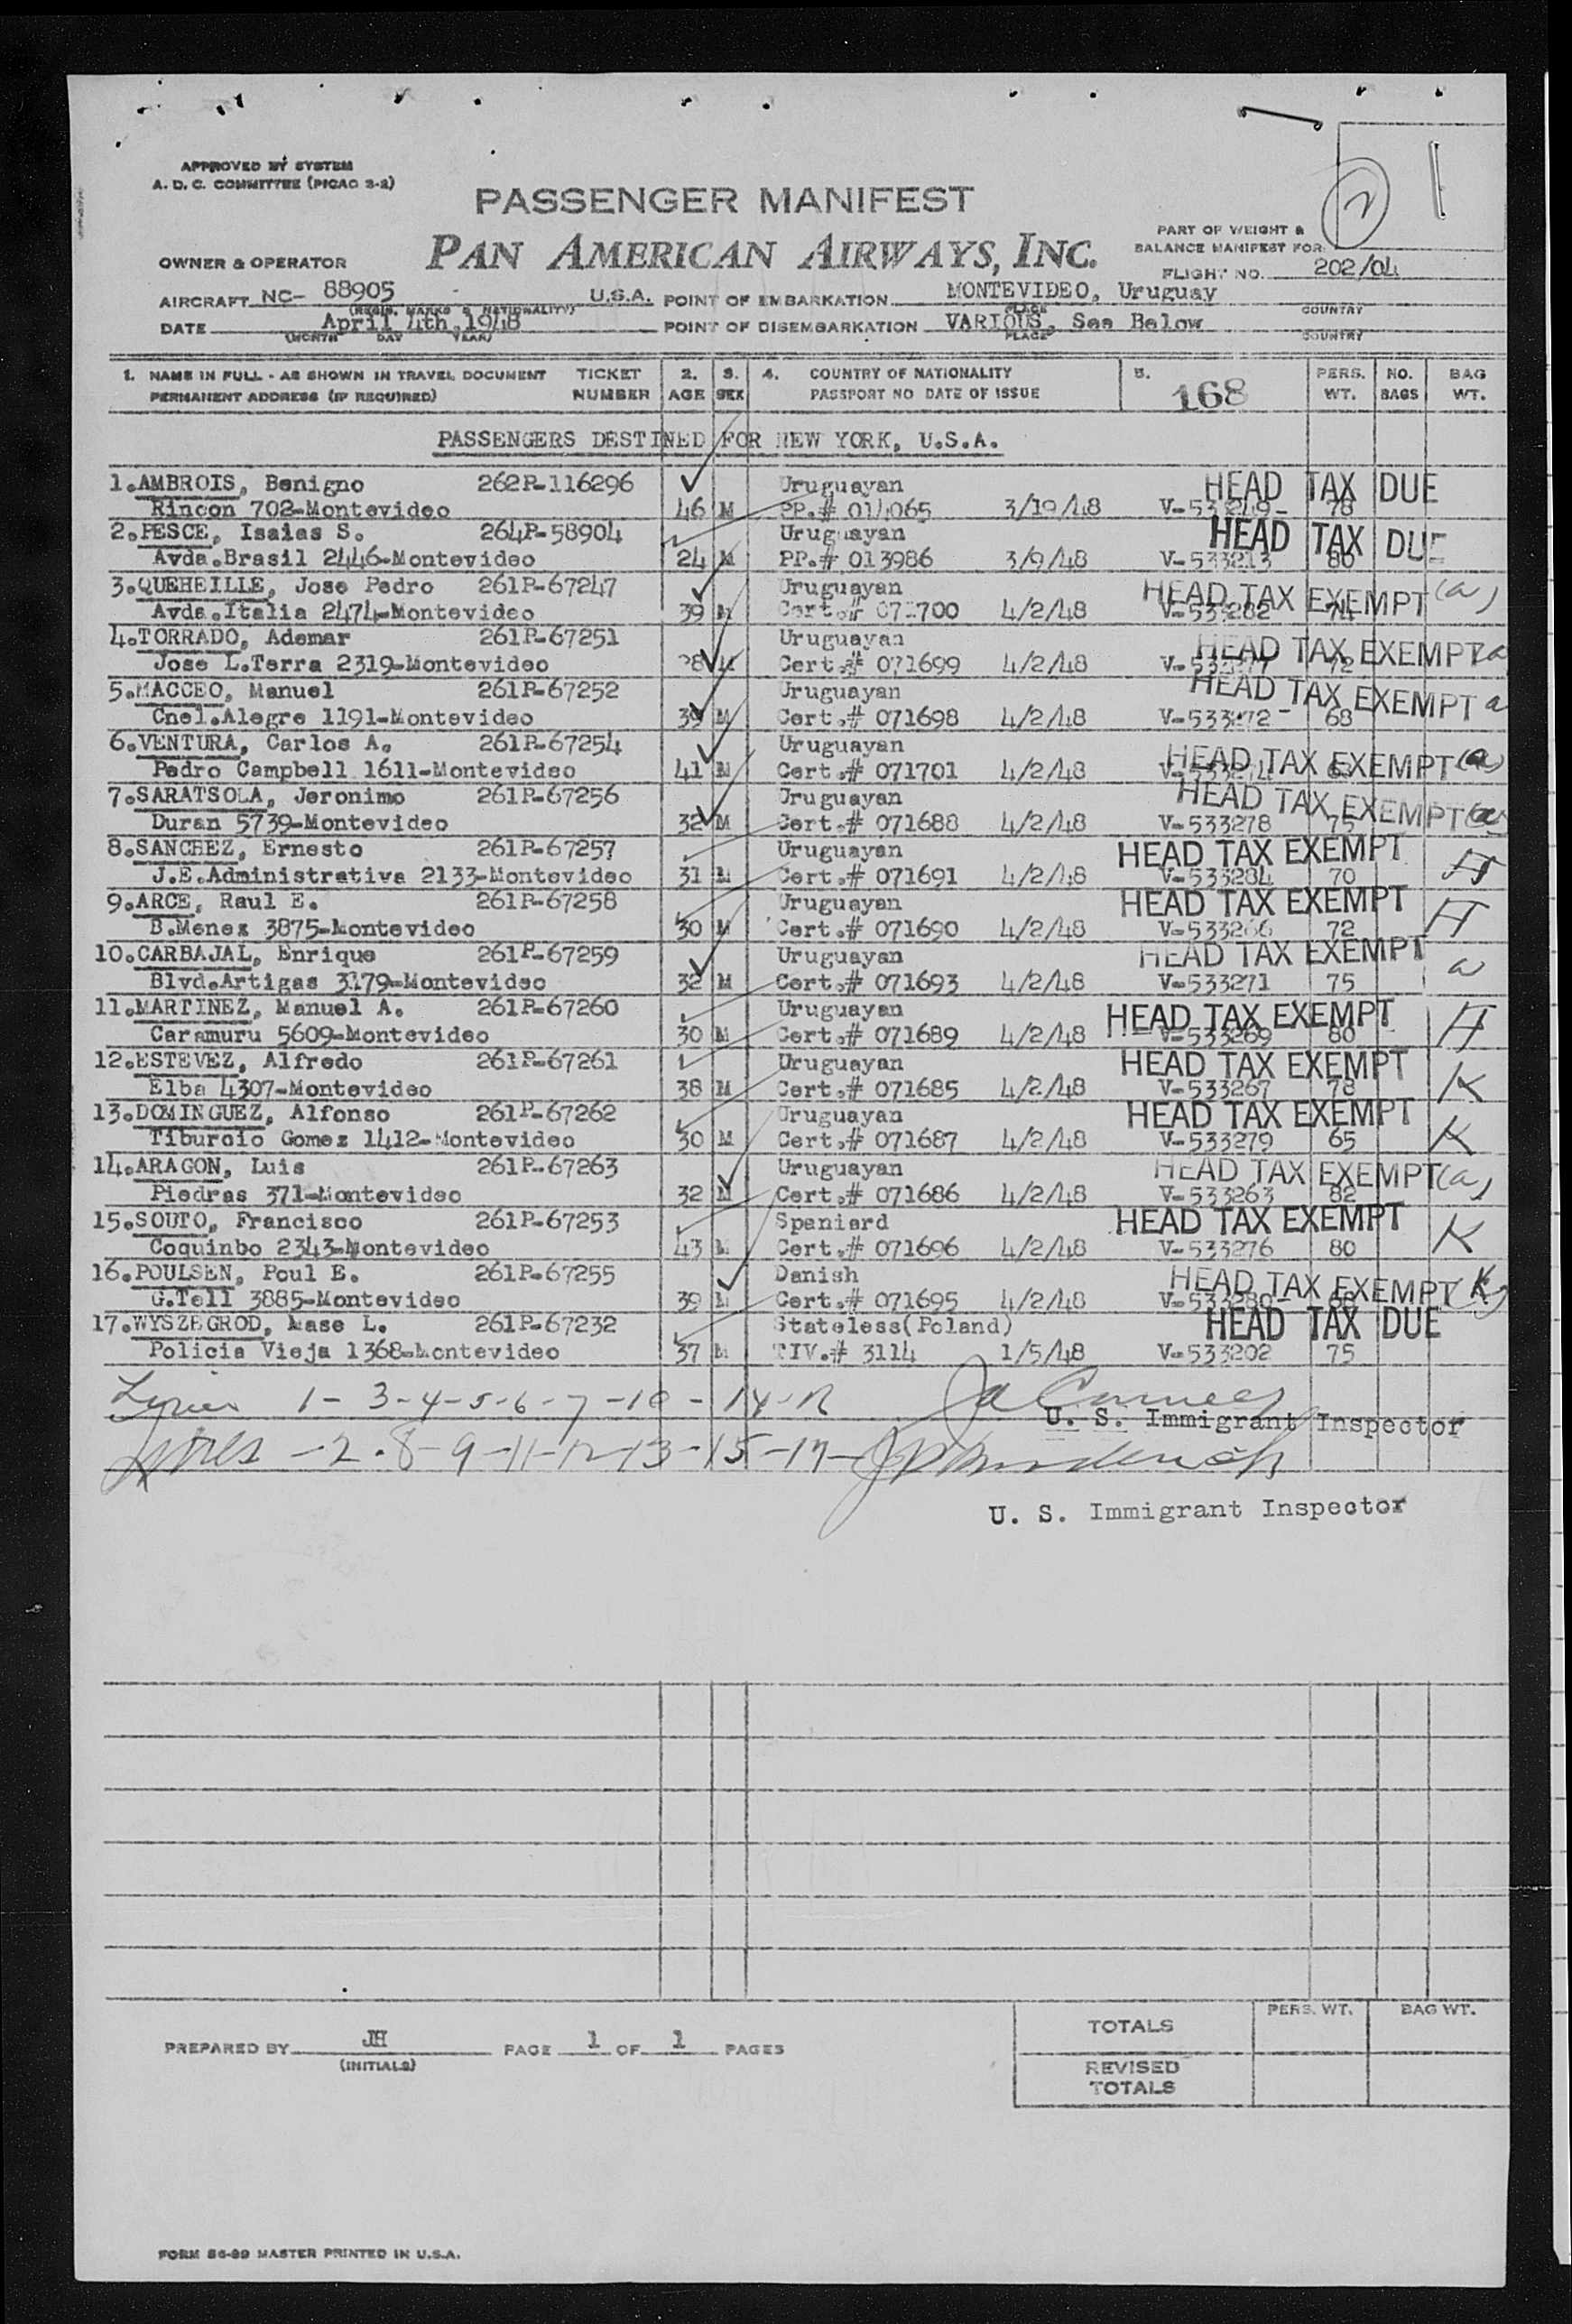 APPROVED BY SYSTEM
A. D. C. COMMITTEE (PICAO 3-2)
2
PASSENGER MANIFEST
PAN AMERICAN AIRWAYS, INC.
PART OF WEIGHT &
BALANCE MANIFEST FOR
FLIGHT NO. 202/04
OWNER & OPERATOR
AIRCRAFT NC- 88905 U.S.A. POINT OF EMBARKATION MONTEVIDEO, Uruguay
(REGIS. MARKS & NATIONALITY) PLACE COUNTRY
DATE April 4th, 1948 POINT OF DISEMBARKATION VARIOUS, See Below
(MONTH DAY YEAR) PLACE COUNTRY
1. NAME IN FULL - AS SHOWN IN TRAVEL DOCUMENT TICKET 2. 3. 4. COUNTRY OF NATIONALITY 5. 168 PERS. NO. BAG
PERMANENT ADDRESS (IF REQUIRED) NUMBER AGE SEX PASSPORT NO DATE OF ISSUE WT. BAGS WT.
PASSENGERS DESTINED FOR NEW YORK, U.S.A.
1.AMBROIS, Benigno 262P-116296 Uruguayan HEAD TAX DUE
Rincon 702-Montevideo 46 M PP.# 014065 3/19/48 78
2.PESCE, Isaias S. 264P-58904 Uruguayan HEAD TAX DUE
Avda.Brasil 2446-Montevideo 24 M PP.# 013986 3/9/48 V-533213 80
3.QUEHEILLE, Jose Pedro 261P-67247 Uruguayan HEAD TAX EXEMPT (a)
Avda.Italia 2474-Montevideo 39 M Cert.# 071700 4/2/48 V-533282 74
4.TORRADO, Ademar 261P-67251 Uruguayan HEAD TAX EXEMPT a
Jose L.Terra 2319-Montevideo M Cert.# 071699 4/2/48 72
5.MACCEO, Manuel 261P-67252 Uruguayan HEAD TAX EXEMPT a
Cnel.Alegre 1191-Montevideo 39 M Cert.# 071698 4/2/48 V-533272 68
6.VENTURA, Carlos A. 261P-67254 Uruguayan HEAD TAX EXEMPT (a)
Pedro Campbell 1611-Montevideo 41 M Cert.# 071701 4/2/48
7.SARATSOLA, Jeronimo 261P-67256 Uruguayan HEAD TAX EXEMPT (a)
Duran 5739-Montevideo 32 M Cert.# 071688 4/2/48 V-533278 75
8.SANCHEZ, Ernesto 261P-67257 Uruguayan HEAD TAX EXEMPT H
J.E.Administrativa 2133-Montevideo 31 M Cert.# 071691 4/2/48 V-533284 70
9.ARCE, Raul E. 261P-67258 Uruguayan HEAD TAX EXEMPT H
B.Menex 3875-Montevideo 30 M Cert.# 071690 4/2/48 V-533266 72
10.CARBAJAL, Enrique 261P-67259 Uruguayan HEAD TAX EXEMPT a
Blvd.Artigas 3179-Montevideo 32 M Cert.# 071693 4/2/48 V-533271 75
11.MARTINEZ, Manuel A. 261P-67260 Uruguayan HEAD TAX EXEMPT H
Caramuru 5609-Montevideo 30 M Cert.# 071689 4/2/48 V-533269 80
12.ESTEVEZ, Alfredo 261P-67261 Uruguayan HEAD TAX EXEMPT K
Elba 4307-Montevideo 38 M Cert.# 071685 4/2/48 V-533267 78
13.DOMINGUEZ, Alfonso 261P-67262 Uruguayan HEAD TAX EXEMPT K
Tiburcio Gomez 1412-Montevideo 30 M Cert.# 071687 4/2/48 V-533279 65
14.ARAGON, Luis 261P-67263 Uruguayan HEAD TAX EXEMPT (a)
Piedras 371-Montevideo 32 M Cert.# 071686 4/2/48 V-533263 82
15.SOUTO, Francisco 261P-67253 Spaniard HEAD TAX EXEMPT K
Coquinbo 2343-Montevideo 43 M Cert.# 071696 4/2/48 V-533276 80
16.POULSEN, Poul E. 261P-67255 Danish HEAD TAX EXEMPT K
G.Tell 3885-Montevideo 39 M Cert.# 071695 4/2/48 V-533280
17.WYSZEGROD, Mase L. 261P-67232 Stateless(Poland) HEAD TAX DUE
Policia Vieja 1368-Montevideo 37 M TIV.# 3114 1/5/48 V-533202 75
1-3-4-5-6-7-10-14-
U. S. Immigrant Inspector
Lines -2-8-9-11-12-13-15-17-
U. S. Immigrant Inspector
PREPARED BY JH PAGE 1 OF 1 PAGES
(INITIALS)
PERS. WT. BAG WT.
TOTALS
REVISED
TOTALS
FORM 86-99 MASTER PRINTED IN U.S.A.